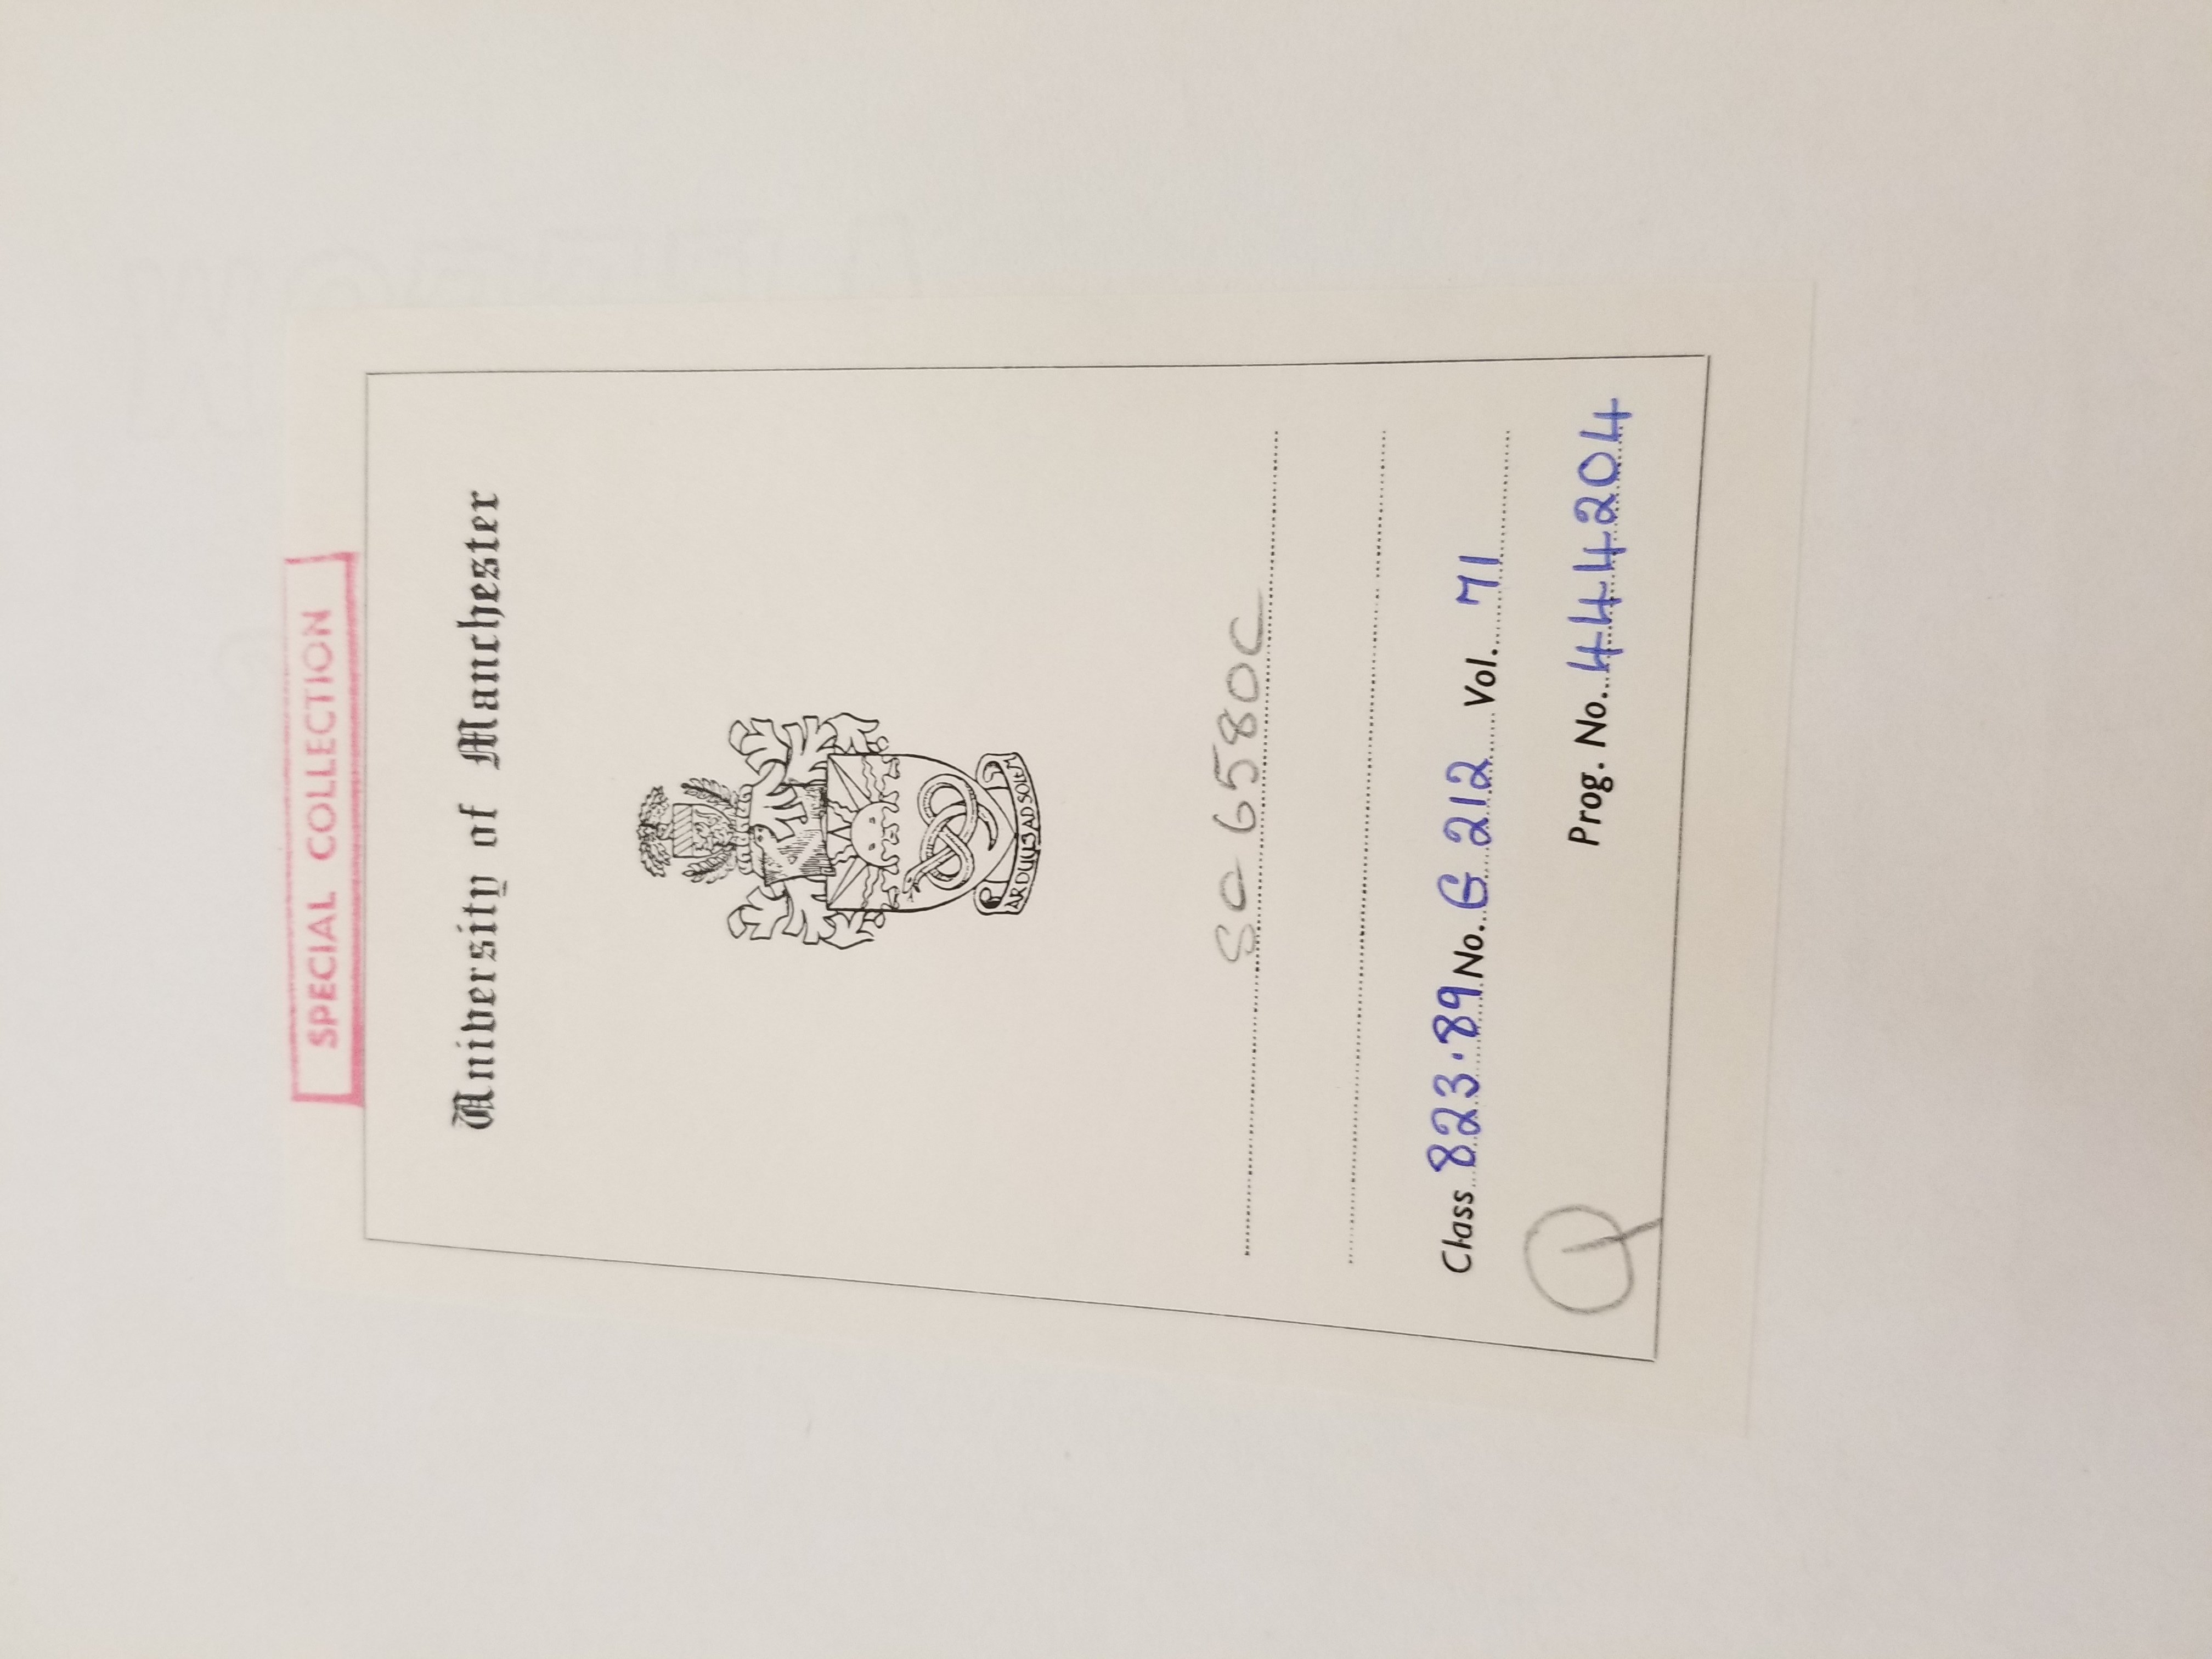 SPECIAL COLLECTION
University of Manchester
ARDUUS AD SOLEM
SC 6580C
Class 823.89 No. G 212 Vol. 71
Q
Prog. No. 444204